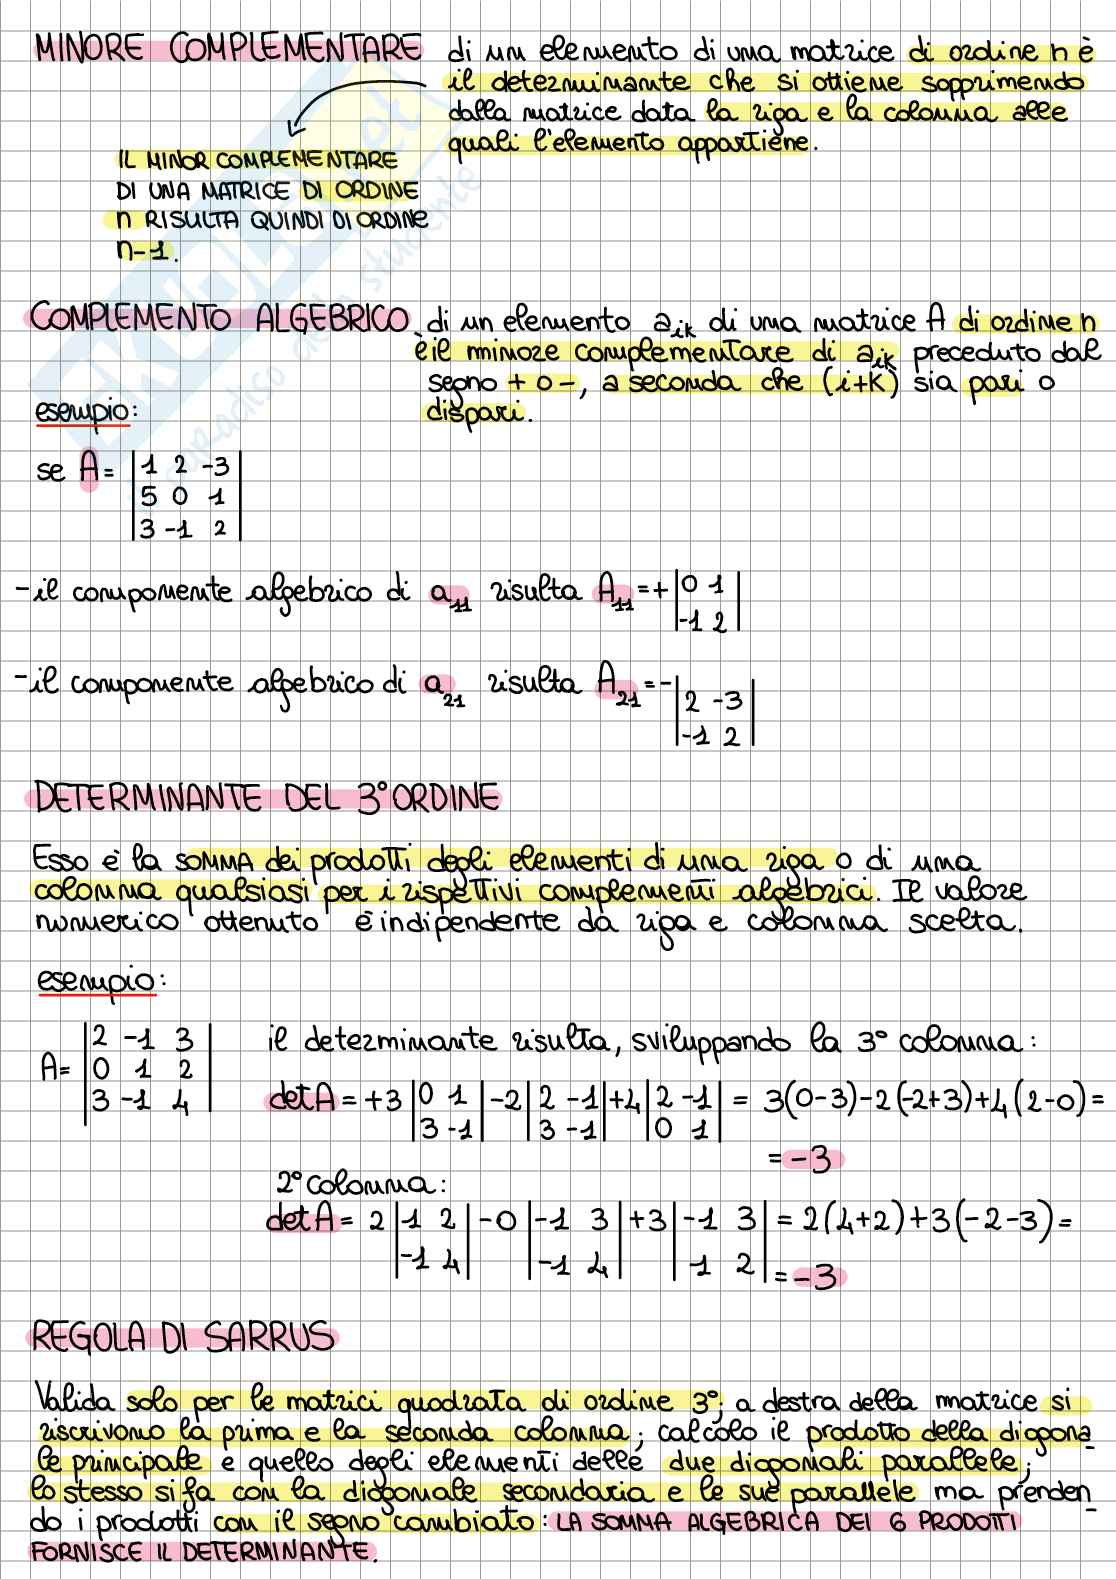 MINORE COMPLEMENTARE di un elemento di una matrice di ordine n è
il determinante che si ottiene sopprimendo
dalla matrice data la riga e la colonna alle
quali l'elemento appartiene.
IL MINOR COMPLEMENTARE
DI UNA MATRICE DI ORDINE
n RISULTA QUINDI DI ORDINE
n-1.
COMPLEMENTO ALGEBRICO di un elemento a_ik di una matrice A di ordine n
è il minore complementare di a_ik preceduto dal
segno + o -, a seconda che (i+k) sia pari o
dispari.
esempio:
se A= |1 2 -3|
|5 0 1|
|3 -1 2|
-il componente algebrico di a_11 risulta A_11=+|0 1|
|-1 2|
-il componente algebrico di a_21 risulta A_21=-|2 -3|
|-1 2|
DETERMINANTE DEL 3° ORDINE
Esso è la SOMMA dei prodotti degli elementi di una riga o di una
colonna qualsiasi per i rispettivi complementi algebrici. Il valore
numerico ottenuto è indipendente da riga e colonna scelta.
esempio:
A= |2 -1 3|
|0 1 2|
|3 -1 4|
il determinante risulta, sviluppando la 3° colonna:
det A = +3 |0 1| -2 |2 -1| +4 |2 -1| = 3(0-3)-2(-2+3)+4(2-0)=
|3 -1| |3 -1| |0 1|
= -3
2° colonna:
det A = 2 |1 2| -0 |-1 3| +3 |-1 3| = 2(4+2)+3(-2-3)=
|-1 4| |-1 4| |1 2|
= -3
REGOLA DI SARRUS
Valida solo per le matrici quadrata di ordine 3°; a destra della matrice si
riscrivono la prima e la seconda colonna; calcolo il prodotto della diagona
le principale e quello degli elementi delle due diagonali parallele;
lo stesso si fa con la diagonale secondaria e le sue parallele ma prenden_
do i prodotti con il segno cambiato: LA SOMMA ALGEBRICA DEI 6 PRODOTTI
FORNISCE IL DETERMINANTE.